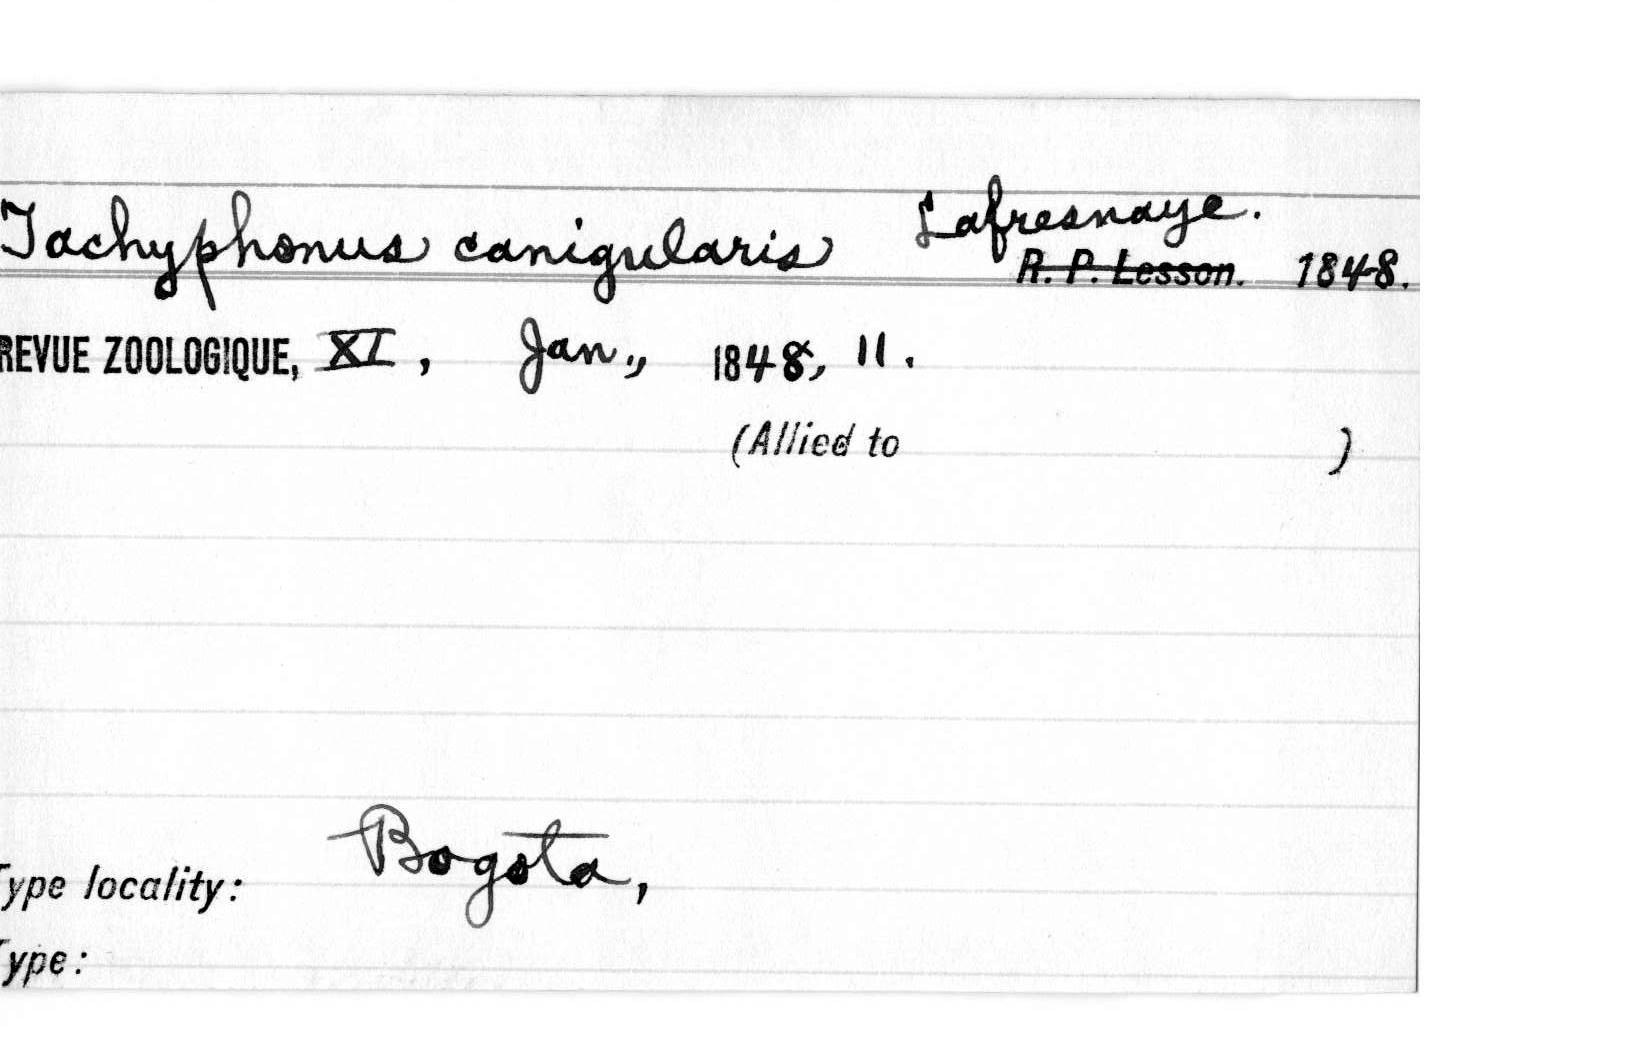 Tachyphonus canigularis Lafresnaye.
R. P. Lesson. 1848.
REVUE ZOOLOGIQUE, XI, Jan., 1848, 11.
(Allied to )
Type locality: Bogota,
Type: